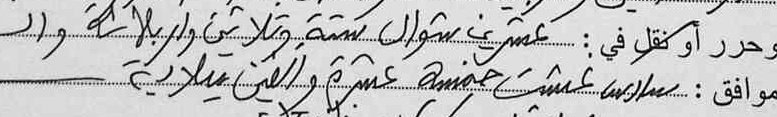 وحرر أو نقل في : عشرين شوال ستة وثلاثين واربعمائة والـ
موافق : سادس غشت خمسة عشرة والفين ميلادية